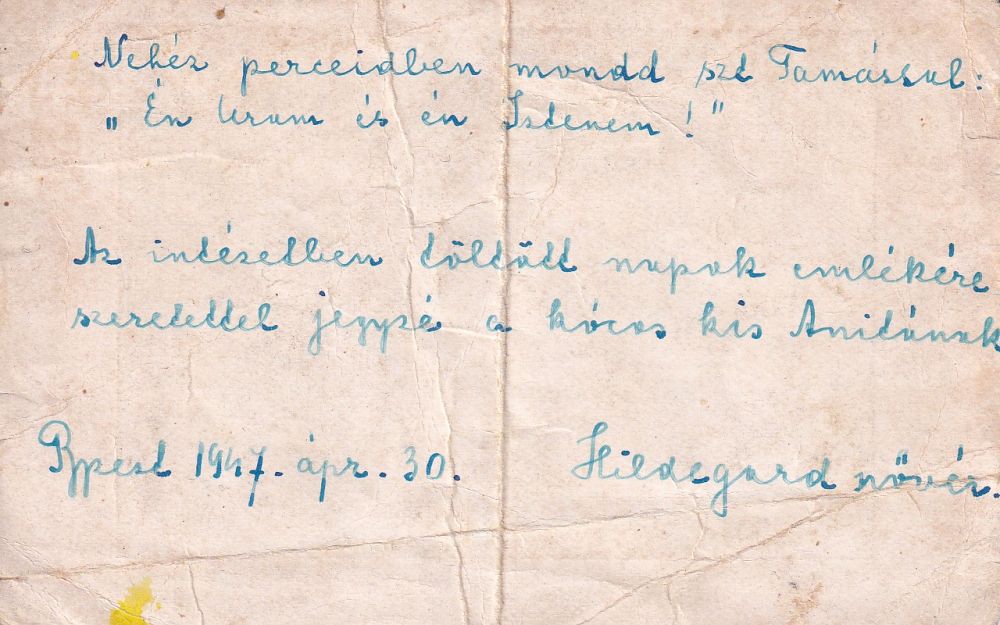 Nehéz perceidben mondd szt Tamással:
„Én Uram és én Istenem!"
Az intézetben töltött napok emlékére
szeretettel jegyzé a kócos kis Anitának
Bpest 1947. ápr. 30. Hildegard nővér.